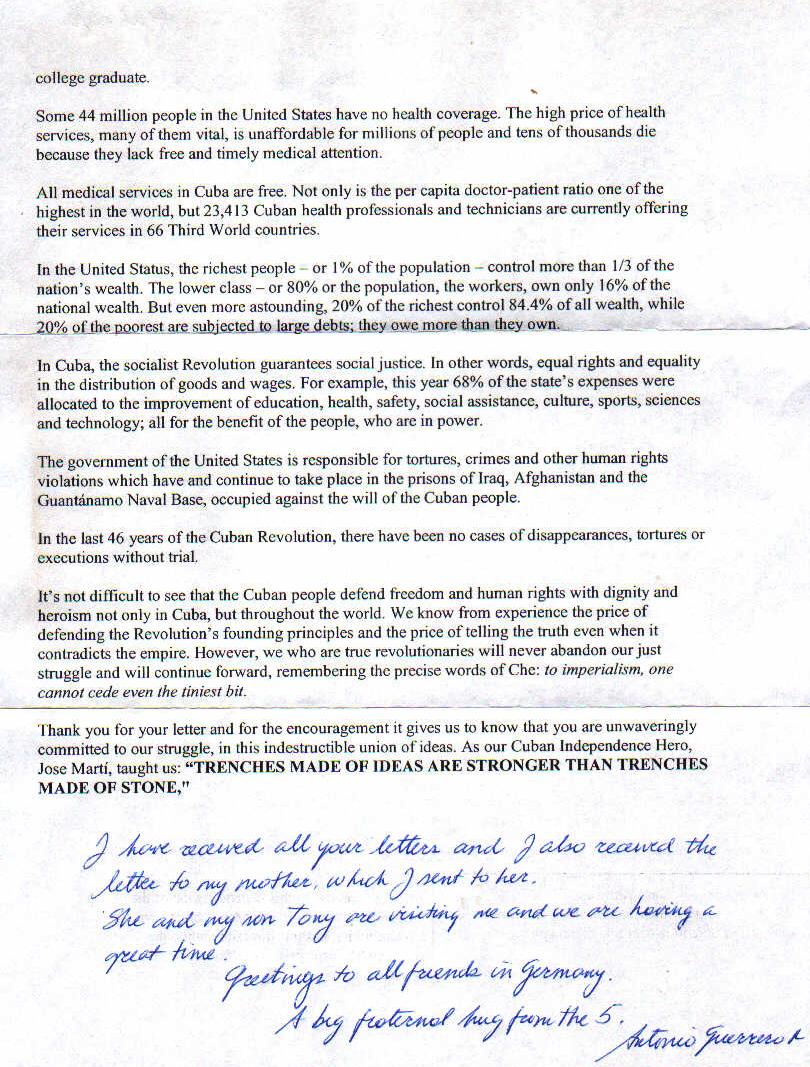 college graduate.
Some 44 million people in the United States have no health coverage. The high price of health
services, many of them vital, is unaffordable for millions of people and tens of thousands die
because they lack free and timely medical attention.
All medical services in Cuba are free. Not only is the per capita doctor-patient ratio one of the
highest in the world, but 23,413 Cuban health professionals and technicians are currently offering
their services in 66 Third World countries.
In the United Status, the richest people – or 1% of the population – control more than 1/3 of the
nation's wealth. The lower class – or 80% or the population, the workers, own only 16% of the
national wealth. But even more astounding, 20% of the richest control 84.4% of all wealth, while
20% of the poorest are subjected to large debts; they owe more than they own.
In Cuba, the socialist Revolution guarantees social justice. In other words, equal rights and equality
in the distribution of goods and wages. For example, this year 68% of the state's expenses were
allocated to the improvement of education, health, safety, social assistance, culture, sports, sciences
and technology; all for the benefit of the people, who are in power.
The government of the United States is responsible for tortures, crimes and other human rights
violations which have and continue to take place in the prisons of Iraq, Afghanistan and the
Guantánamo Naval Base, occupied against the will of the Cuban people.
In the last 46 years of the Cuban Revolution, there have been no cases of disappearances, tortures or
executions without trial.
It's not difficult to see that the Cuban people defend freedom and human rights with dignity and
heroism not only in Cuba, but throughout the world. We know from experience the price of
defending the Revolution's founding principles and the price of telling the truth even when it
contradicts the empire. However, we who are true revolutionaries will never abandon our just
struggle and will continue forward, remembering the precise words of Che: to imperialism, one
cannot cede even the tiniest bit.
Thank you for your letter and for the encouragement it gives us to know that you are unwaveringly
committed to our struggle, in this indestructible union of ideas. As our Cuban Independence Hero,
Jose Martí, taught us: “TRENCHES MADE OF IDEAS ARE STRONGER THAN TRENCHES
MADE OF STONE,"
I have received all your letters and I also received the
letter to my mother, which I sent to her.
She and my son Tony are visiting me and we are having a
great time.
Greetings to all friends in Germany.
A big fraternal hug from the 5.
Antonio Guerrero R